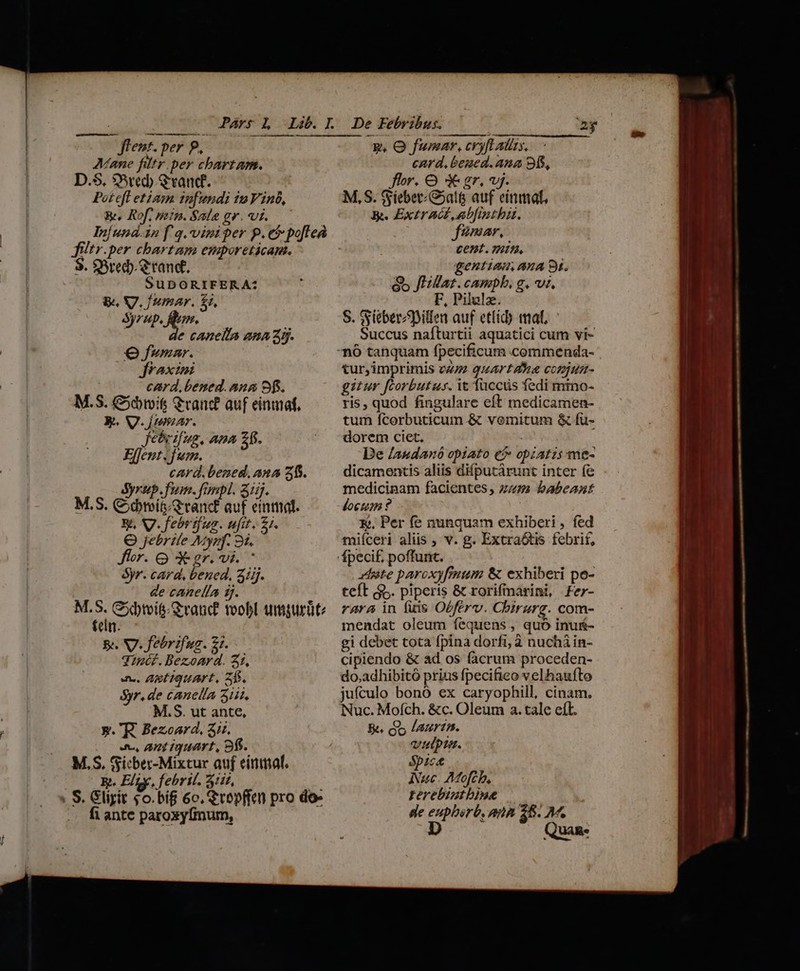 Pars I. Lib. I. De Febribus. 25
ſtent. per ℞.
Mane filtr per chartam.
D.S. Brech-Tranck.
Potest etiam infundi in Vinô,
℞. Roſ. min. Sale gr. vi.
Infund. in ſ q. vini per ℞. & poſtea
filtr. per chartam emporeticam.
S. Brech-Tranck.
SUDORIFERA:
℞. 🜄. fumar. ℥i,
Syrup. fum.
de canella ana ʒij.
🜔 fumar.
fraxini
card. bened. ana ℈ß.
M.S. Schwitz Tranck auf einmal.
℞. 🜄. fumar.
febrifug. ana ℥ß.
Eſſent. fum.
card. bened. ana ʒß.
Syrup. fum. ſimpl. ʒiij.
M.S. Schwitz-Tranck auf einmal.
℞. 🜄. febrifug. uſit. ℥i.
🜔 febrile Mynſ. ℈i,
flor. 🜔 🞶 gr. vi.
Syr. card. bened. ʒiij.
de canella ij.
M.S. Schwitz-Tranck wohl umzurüt-
teln.
℞. 🜄. febrifug. ℥i.
Tinct. Bezoard. ʒi,
antiquart. ʒß.
Syr. de canella ʒiii.
M.S. ut ante,
℞. Bezoard. ʒii.
antiquart. ℈ß.
M.S. Fieber-Mixtur auf einmal.
℞. Elix. febril. ʒiii,
S. Elixir 50. biß 60. Tropffen pro do-
ſi ante paroxyſmum,
℞. 🜔 fumar. cryſtallis.
card. bened. ana ℈ß,
flor. 🜔 🞶 gr. vj.
M.S. Fieber-Saltz auf einmal,
℞. Extract. abſinthii.
fumar,
cent. min,
gentian. ana ℈i.
ſtillat. camph. g. vi,
F. Pilulæ.
S. Fieber-Pillen auf etlich mal,
Succus naſturtii aquatici cum vi-
nô tanquam ſpecificum commenda-
tur, imprimis cùm quartanæ conjun-
gitur ſcorbutus. it ſuccus ſedi mino-
ris, quod ſingulare eſt medicamen-
tum ſcorbuticum & vomitum & ſu-
dorem ciet.
De laudanô opiato & opiatis me-
dicamentis aliis diſputârunt inter ſe
medicinam facientes, num habeant
locum?
℞. Per ſe nunquam exhiberi, ſed
miſceri aliis, v. g. Extractis febrif,
ſpecif. poſſunt.
Ante paroxyſmum & exhiberi po-
teſt piperis & roriſmarini, Fer-
rara in ſuis Obſerv. Chirurg. com-
mendat oleum ſequens, quô inun-
gi debet tota ſpina dorſi, à nuchâ in-
cipiendo & ad os ſacrum proceden-
do, adhibitô prius ſpecifico vel hauſto
juſculo bonô ex caryophill, cinam.
Nuc. Moſch. &c. Oleum a. tale eſt.
℞. laurin.
vulpin.
Spicæ
Nuc Moſch,
terebinthinæ
de euphorb, ana ℥ß. M,
D Quan-